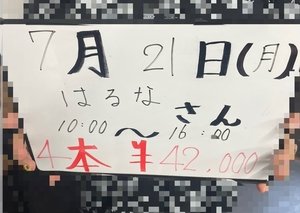 7月21日(月)
はるなさん
10:00〜16:00
4本 ¥42.000